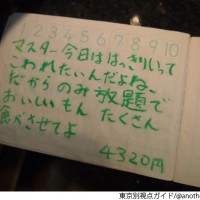 1 2 3 4 5 6 7 8 9 10
マスター今日ははっきりいって
こわれたいんだよね、
だから のみ放題で
おいしいもん たくさん
食べさせてよ
4320円
東京別視点ガイド/@anoth